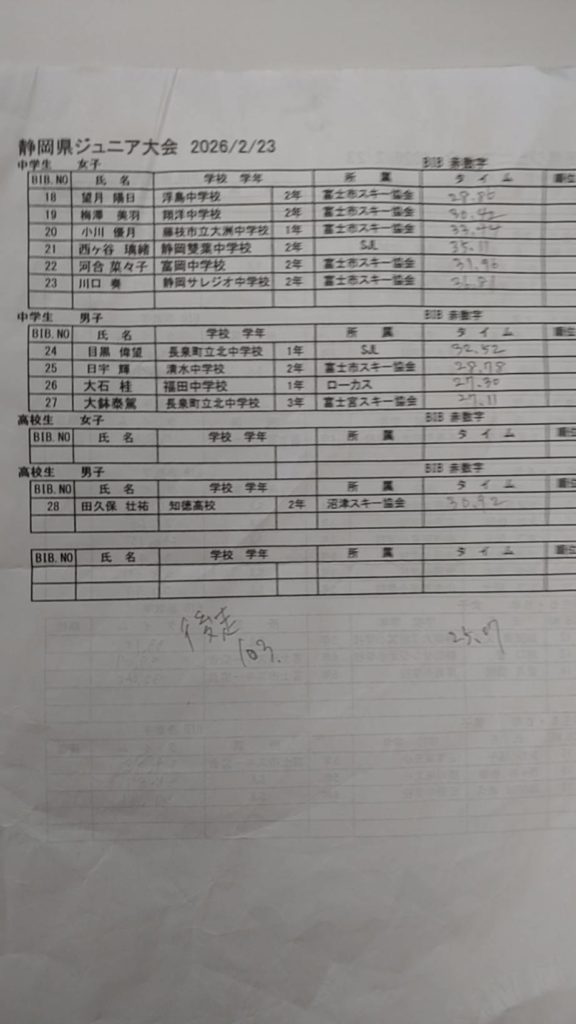 静岡県ジュニア大会 2026/2/23
中学生 女子 BIB 赤数字
BIB.NO 氏 名 学校 学年 所 属 タ イ ム 順位
18 望月 陽日 浮島中学校 2年 富士市スキー協会 28.86
19 梅澤 美羽 翔洋中学校 2年 富士市スキー協会 30.42
20 小川 優月 藤枝市立大洲中学校 1年 富士市スキー協会 33.44
21 西ヶ谷 璃緒 静岡雙葉中学校 2年 SJL 35.11
22 河合 菜々子 富岡中学校 2年 富士市スキー協会 31.96
23 川口 奏 静岡サレジオ中学校 2年 富士市スキー協会
中学生 男子 BIB 赤数字
BIB.NO 氏 名 学校 学年 所 属 タ イ ム 順位
24 目黒 偉望 長泉町立北中学校 1年 SJL 32.52
25 日宇 輝 清水中学校 2年 富士市スキー協会 28.78
26 大石 桂 福田中学校 1年 ローカス 27.30
27 大鉢泰駕 長泉町立北中学校 3年 富士宮スキー協会 27.11
高校生 女子 BIB 赤数字
BIB.NO 氏 名 学校 学年 所 属 タ イ ム 順位
高校生 男子 BIB 赤数字
BIB.NO 氏 名 学校 学年 所 属 タ イ ム 順位
28 田久保 壮祐 知徳高校 2年 沼津スキー協会 30.92
BIB.NO 氏 名 学校 学年 所 属 タ イ ム 順位
後走
103. 25.07